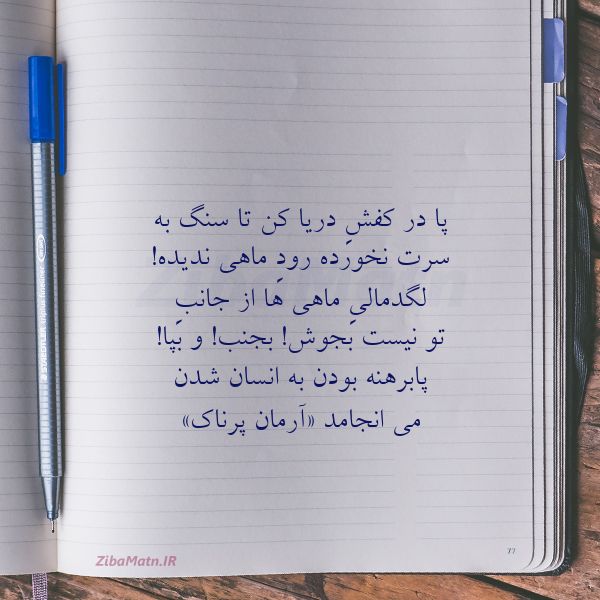 پا در کفشِ دریا کن تا سنگ به
سرت نخورده رودِ ماهی ندیده!
لگدمالیِ ماهی ها از جانبِ
تو نیست بجوش! بجنب! و بپا!
پابرهنه بودن به انسان شدن
می انجامد «آرمان پرناک»
ZibaMatn.IR
77